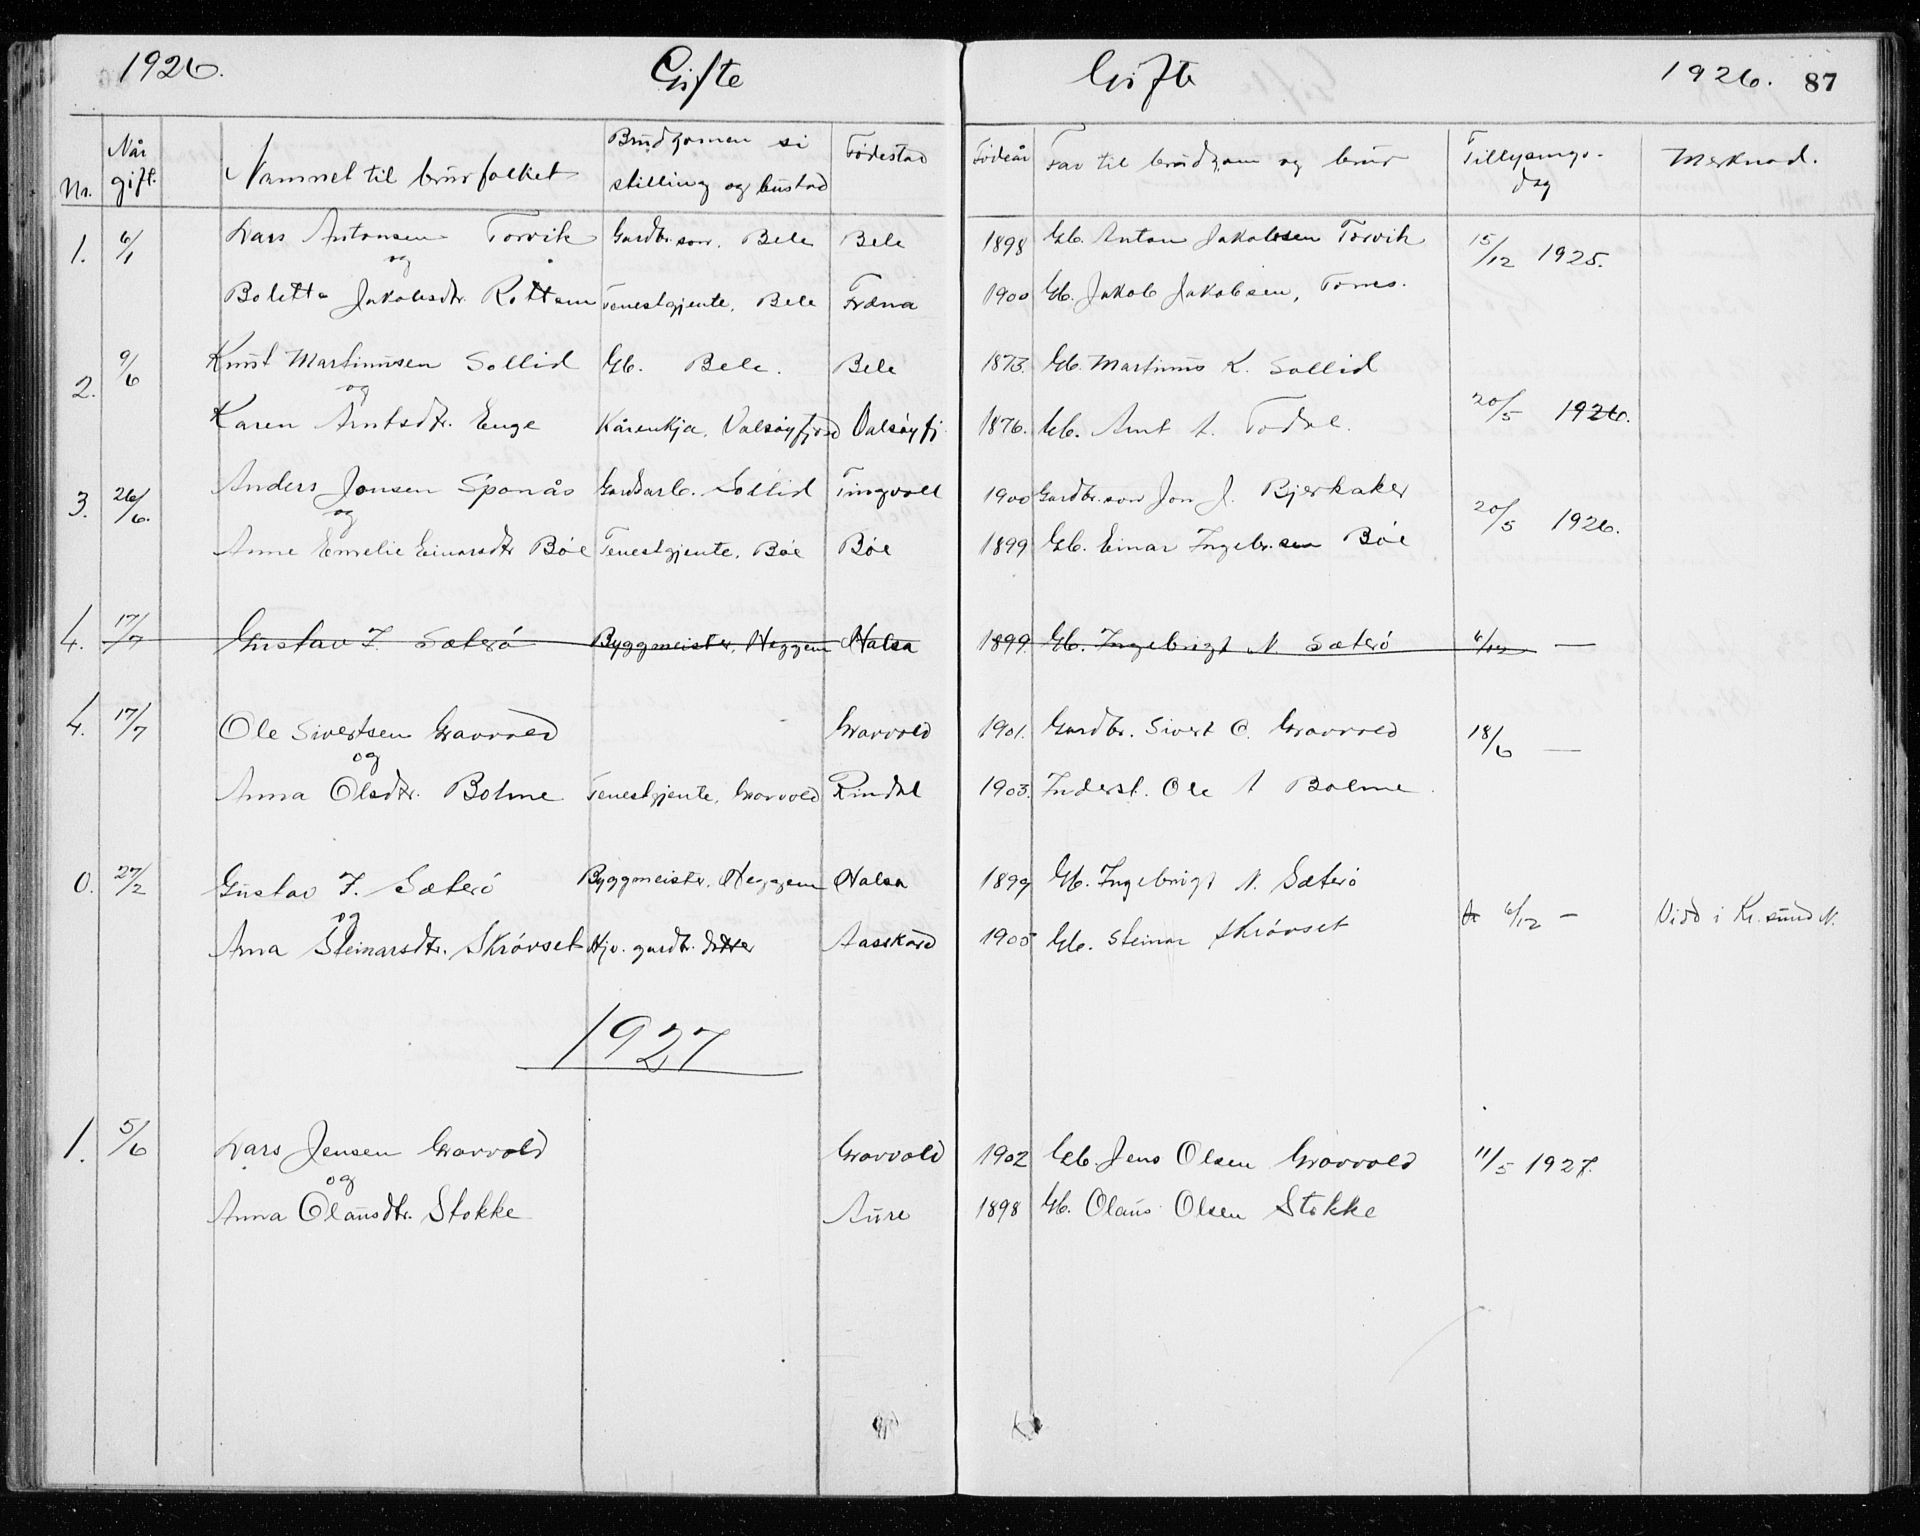 1926. Gifte Gifte 1926. 87
Nr. Når gift. Namnet til brurfolket Brudgomen si stilling og bustad Fødestad Fødeår Far til brudgom og brur Tillysings-dag Merknad.
1. 6/1 Lars Antonsen Torvik Gardbr.son, Bele Bele 1898 Gb. Anton Jakobsen Torvik 15/12 1925.
og
Boletta Jakobsdtr. Rottem Tenestgjente, Bele Fræna 1900 Gb. Jakob Jakobsen,
2. 9/6 Knut Martinusen Sollid Gb. Bele. Bele 1873. Gb. Martinus K. Sollid
og
Karen Arntsdtr. Enge Kårenkja, Valsøyfjord Valsøyfj. 1876. Gb. Arnt A. Todal. 20/5 1926.
3. 26/6. Anders Jonsen Sponås Gardsarb. Sollid Tingvoll 1900 Gardbr.son Jon J. Bjerkaker
og 20/5 1926.
Anne Emelie Einarsdtr Bøe Tenestgjente, Bøe Bøe 1899 Gb. Einar Ingebr.sen Bøe
4. 17/7 Gustav I. Sæterø Byggmeister, Heggem Halsa 1899. Gb. Ingebrigt N. Sæterø 6/12 —
4. 17/7 Ole Sivertsen Gravvold Gravvold 1901. Gardbr. Sivert O. Gravvold 18/6 —
og
Anna Olsdtr. Bolme Tenestgjente, Gravvold Rindal 1903. Inderst. Ole A Bolme.
0. 27/2 Gustav I. Sæterø Byggmeister, Heggem Halsa 1899 Gb. Ingebrigt N. Sæterø
og 6/12 — Vidd i Kr.sund N.
Anna Steinarsdtr. Skrøvset Hjv. gardbr. dotter Aasskard 1905 Gb. Steinar Skrøvset
1927
1. 5/6 Lars Jensen Gravvold Gravvold 1902 Gb. Jens Olsen Gravvold 11/5 1927.
og
Anna Olausdtr. Stokke Aure 1898 Gb. Olaus Olsen Stokke